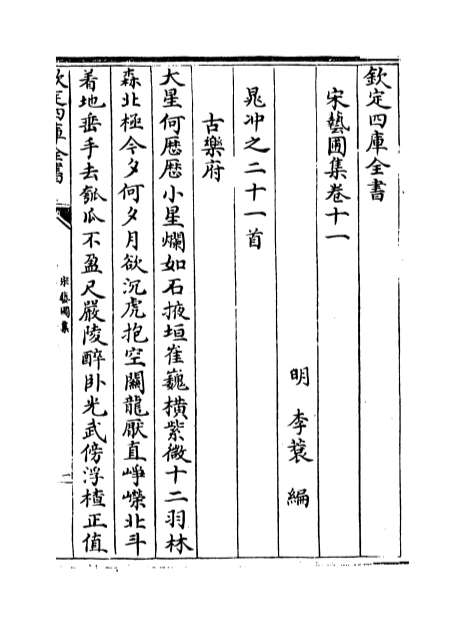 欽定四庫全書
宋藝圃集卷十一
明 李蓘 編
晁冲之二十一首
古樂府
大星何歴歴小星爛如石掖垣崔巍橫紫微十二羽林
森北極今夕何夕月欲沉虎抱空關龍厭直崢嶸北斗
着地垂手去瓠瓜不盈尺嚴陵醉卧光武傍浮楂正值
欽定四庫全書
宋藝圃集